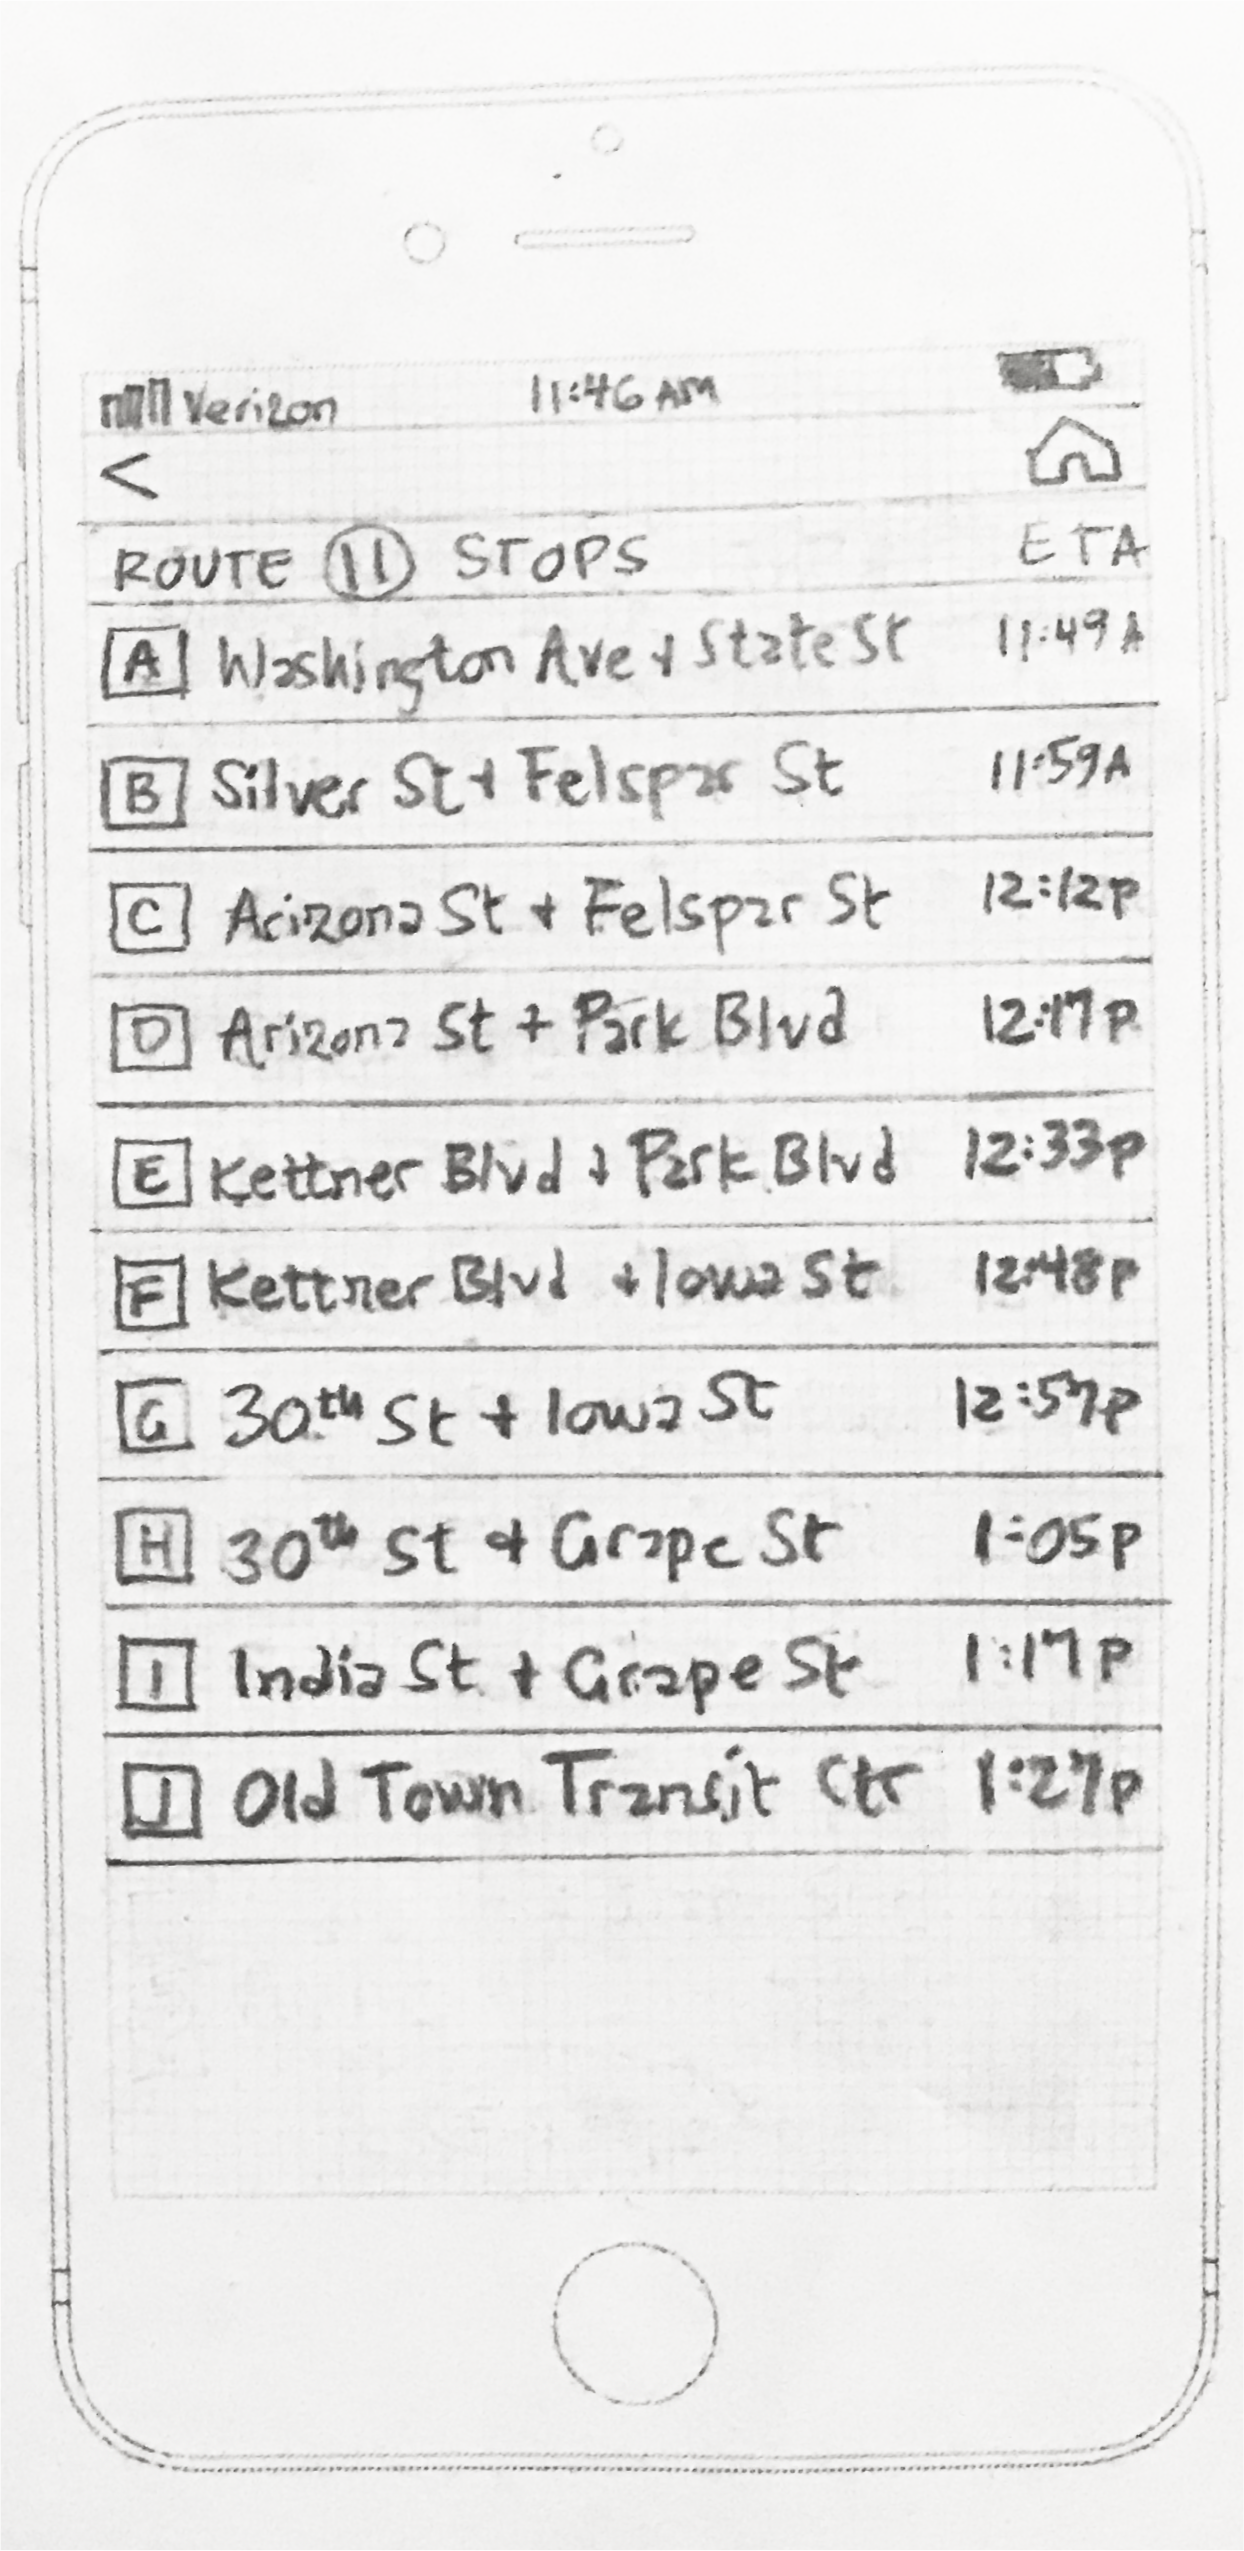 Verizon 11:46 AM
<
ROUTE 11 STOPS ETA
A Washington Ave + State St 11:49A
B Silver St + Felspar St 11:59A
C Arizona St + Felspar St 12:12p
D Arizona St + Park Blvd 12:17p
E Kettner Blvd + Park Blvd 12:33p
F Kettner Blvd + Iowa St 12:48p
G 30th St + Iowa St 12:57p
H 30th St + Grape St 1:05p
I India St + Grape St 1:17p
J Old Town Transit Ctr 1:27p